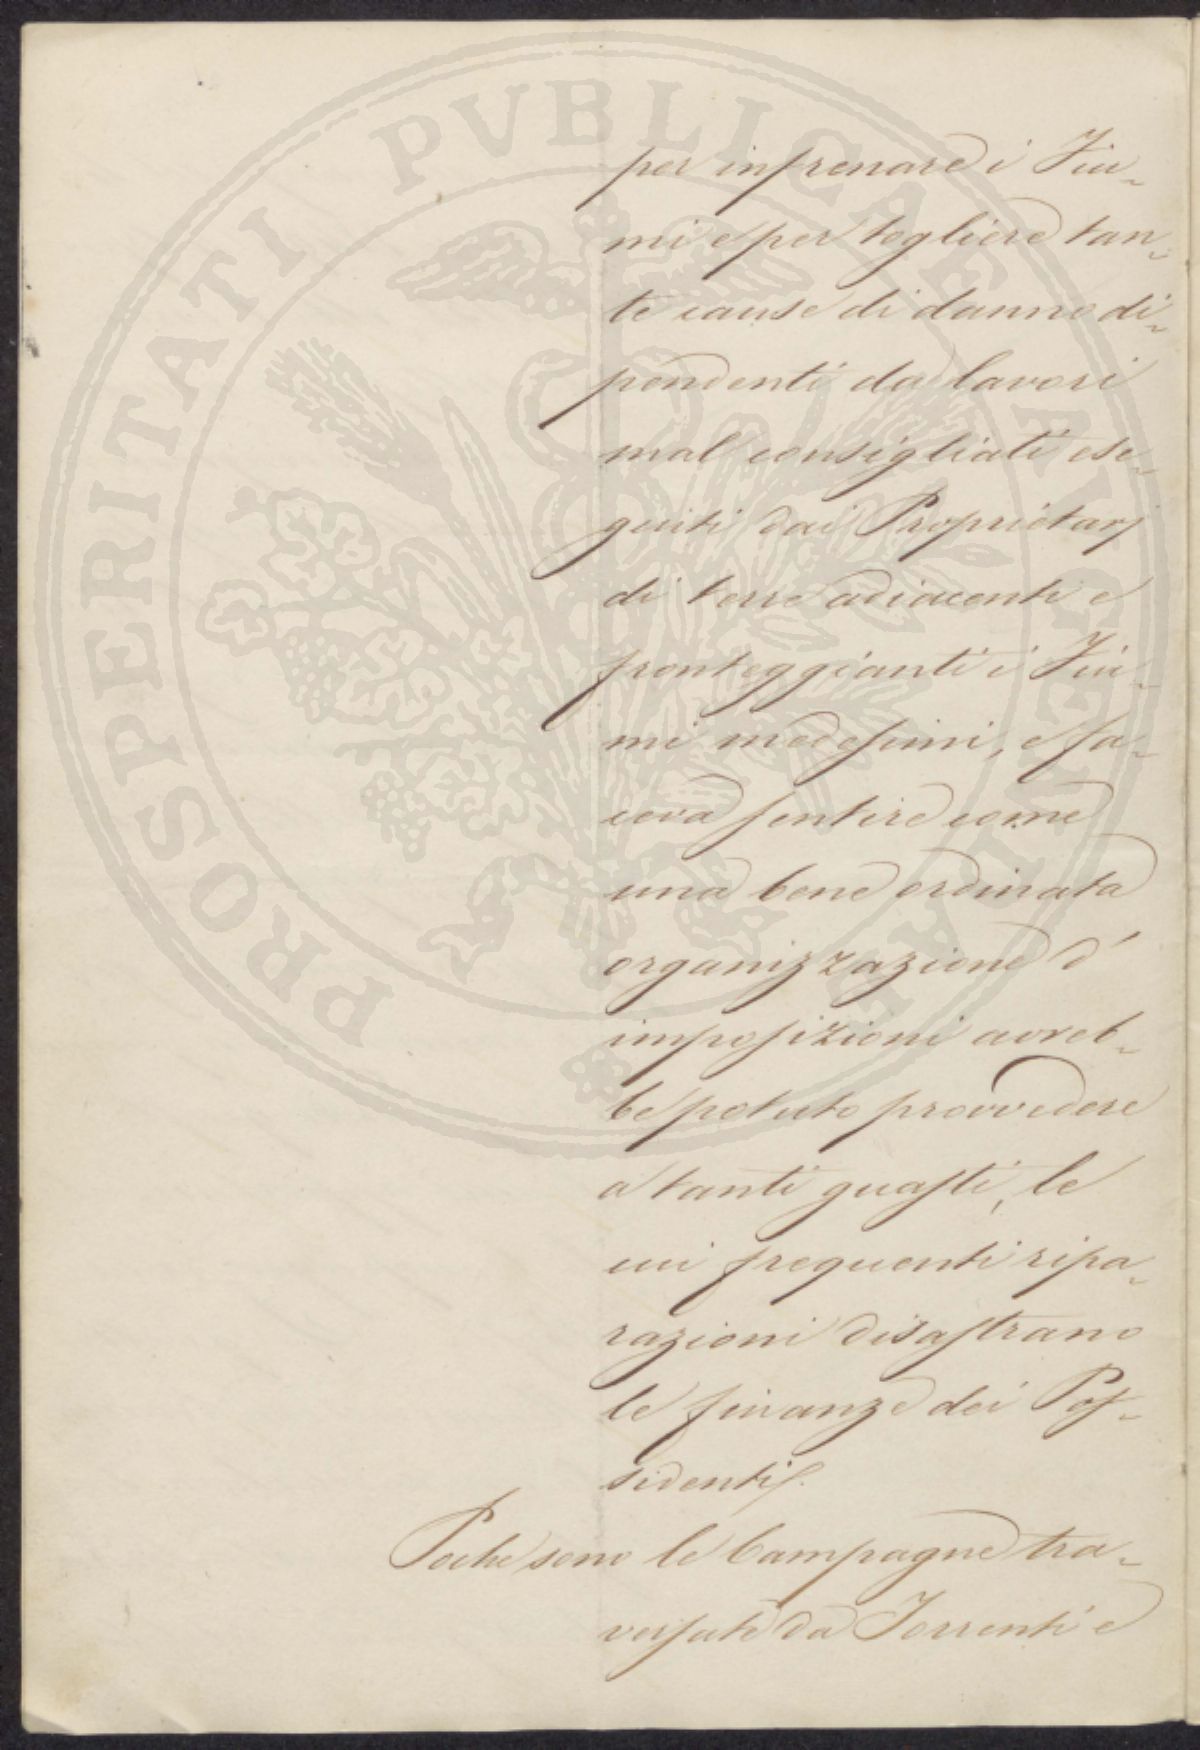 PROSPERITATI PVBLICAE AVGENDAE
per infrenare i Fiu-
mi e per togliere tan-
te cause di danno di-
pendenti da lavori
mal consigliati ese-
guiti dai Proprietarj
di terre adiacenti e
fronteggianti i Fiu-
mi medesimi, e fa-
ceva sentire come
una bene ordinata
organizzazione d'
imposizioni avreb-
be potuto provvedere
a tanti guasti, le
cui frequenti ripa-
razioni disastrano
le finanze dei Pos-
sidenti.
Poche sono le Campagne tra-
versate da Torrenti e